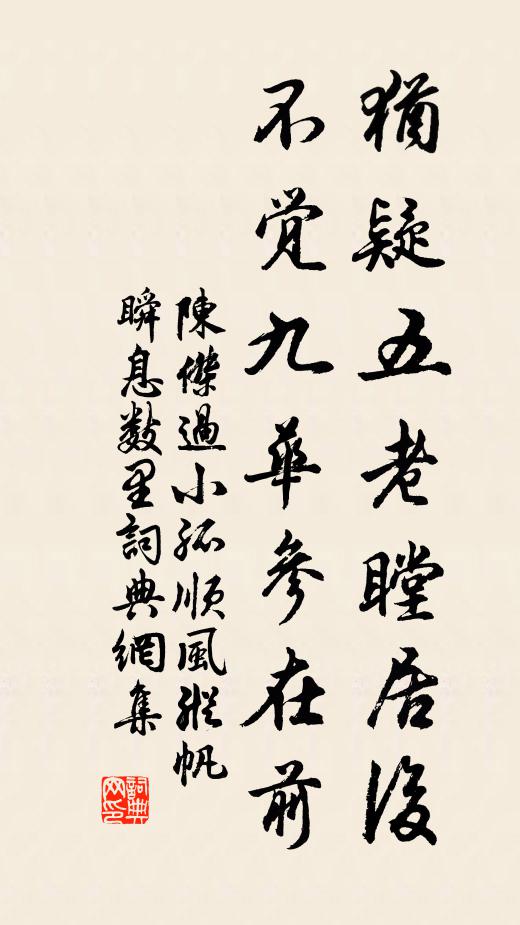 猶疑五老瞠居後
不覺九華參在前
陳傑過小孤順風縱帆
瞬息数里詞典網集
詞典网印